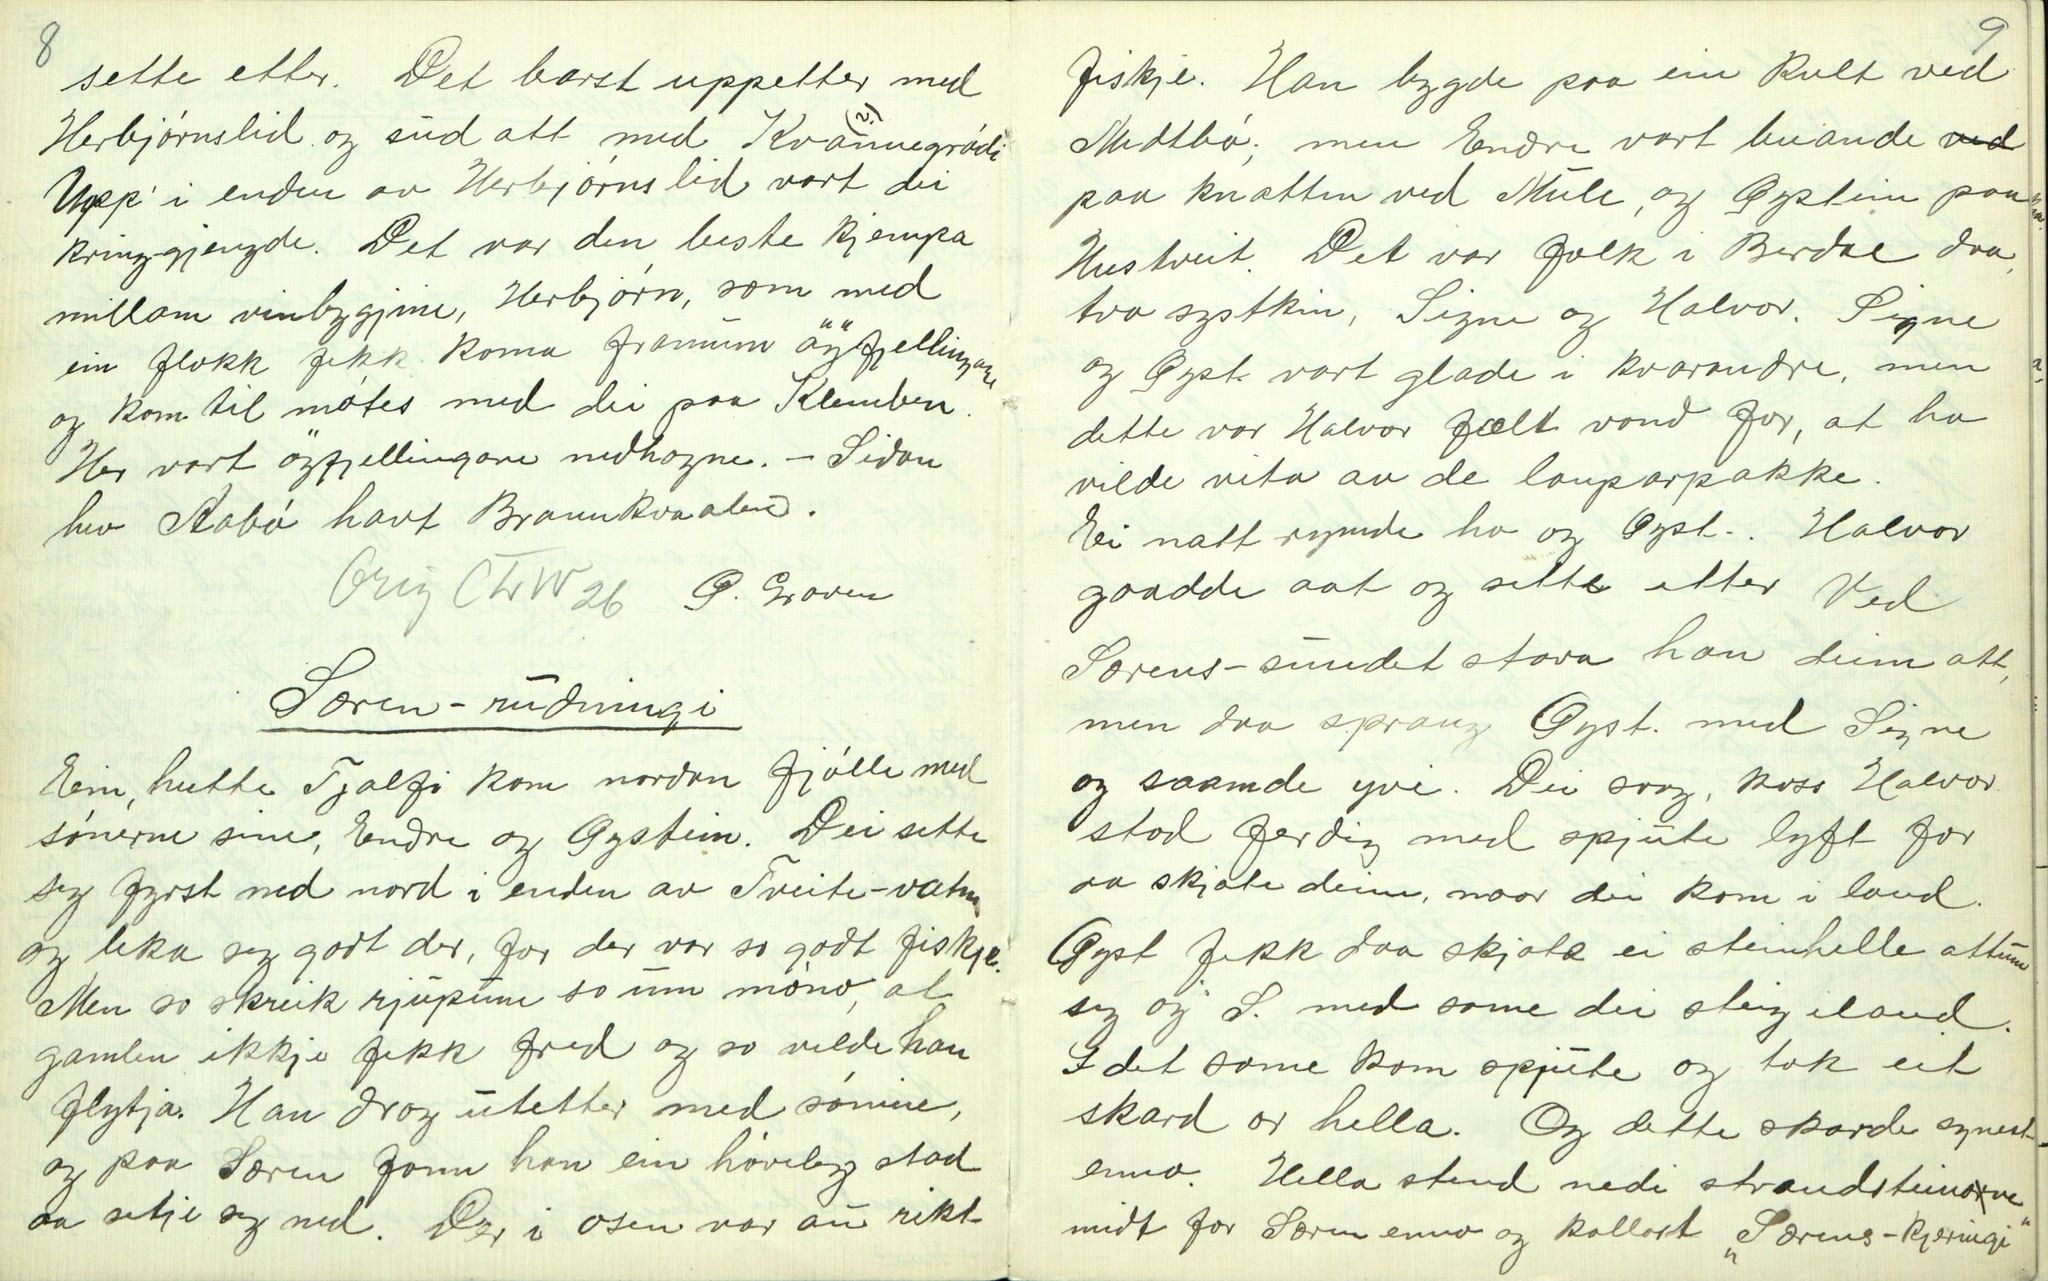 8
sette etter. Det barst uppetter med
Herbjörnslid og sud att med Kvannegródi (?)
Upp i enden av Herbjörnslid vart dei
kring-gjengde. Det var den beste kjempa
millam vinbyggjine, Herbjörn, som med
ein flokk fekk koma framum öyfjellingane
og kom til mótes med dei paa Klemben.
Her vart öyfjellingane nedhogne. – Sidan
hev Aabó havt Braunkvaalene.
Orig CTW 26 O. Graven
Særen-rudningi
Ein, heitte Tjalfi kom nordan fjölle med
sónerne sine, Endre og Øystein. Dei sette
seg fyrst ned nord i enden av Tveite-vatn
og lika seg godt der, for der var so godt fiskje.
Men so skreik rjupune so um móno, at
gamlen ikkje fekk fred og so vilde han
flytja. Han drog utetter med sónine,
og paa Særen fann han ein høveleg stad
aa setje seg ned. Der i osen var au rikt
9
fiskje. Han bygde paa ein kult ved
Midtbó; men Endre vart buande ved
paa knatten ved Mule, og Øystein paa
Hustveit. Det var folk i Berdal daa,
tvo systkin, Signe og Halvor. Signe
og Øyst. vart glade i kvarandre, men
dette var Halvor fælt vond for, at ho
vilde vita av de louparpakke.
Ei natt rymde ho og Øyst.. Halvor
gaadde aat og sette etter Ved
Særens-sundet stava han deim att,
men daa sprang Øyst. med Signe
og saamde yvi. Dei saag, koss Halvor
stod ferdig med spjute lyft for
aa skjote deim, naar dei kom i land.
Øyst fekk daa skjote ei steinhelle attum
seg og S. med same dei steig iland.
I det same kom spjute og tok eit
skard or hella. Og dette skarde synest
enno. Hella stend nedi strandsteinarne
midt for Særen enno og kallast „Særens-kjeringi"